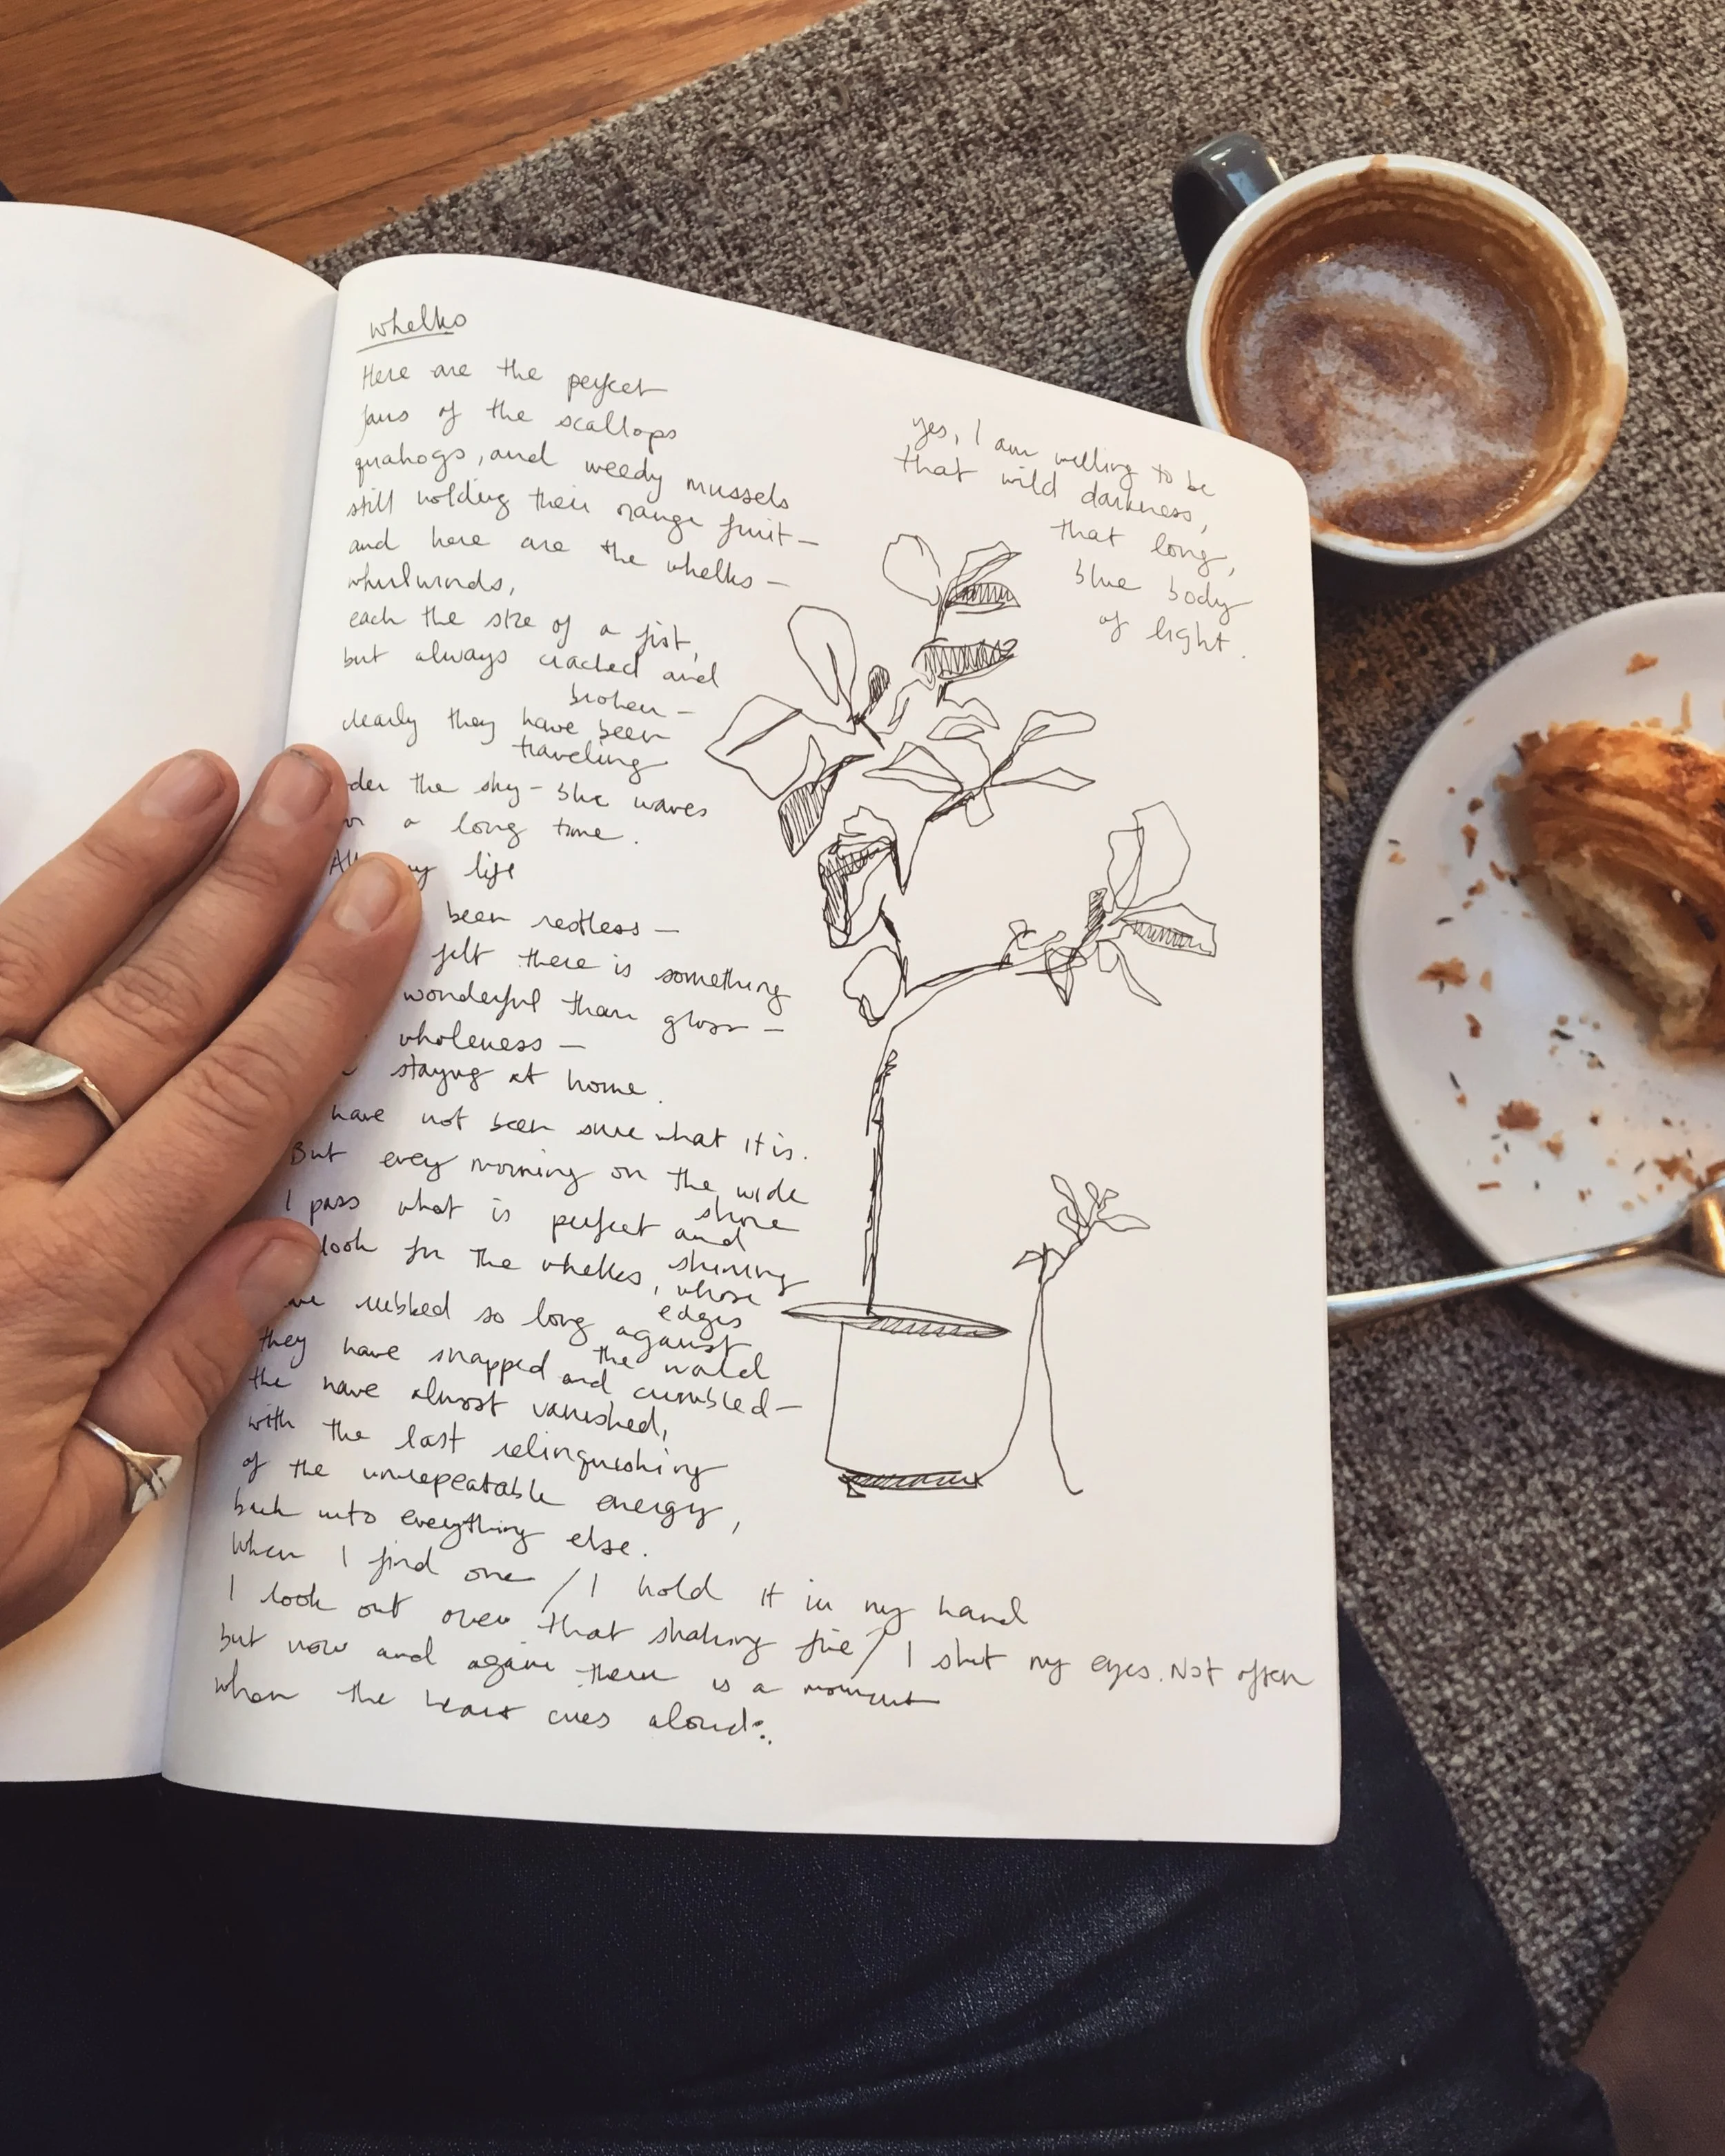 whelks
Here are the perfect
fans of the scallops
quahogs, and weedy mussels
still holding their orange fruit —
and here are the whelks —
whirlwinds,
each the size of a fist,
but always cracked and
broken —
clearly they have been
traveling
der the sky-blue waves
a long time.
All my life
been restless —
felt there is something
wonderful than gloss —
wholeness —
staying at home.
have not been sure what it is.
But every morning on the wide
shore
I pass what is perfect and
shining
look for the whelks, whose
edges
ve rubbed so long against
the world
they have snapped and crumbled —
the have almost vanished,
with the last relinquishing
of the unrepeatable energy,
back into everything else.
When I find one / I hold it in my hand
I look out over that shaking fire / I shut my eyes. Not often
but now and again there is a moment
when the heart cries aloud:
yes, I am willing to be
that wild darkness,
that long,
blue body
of light.